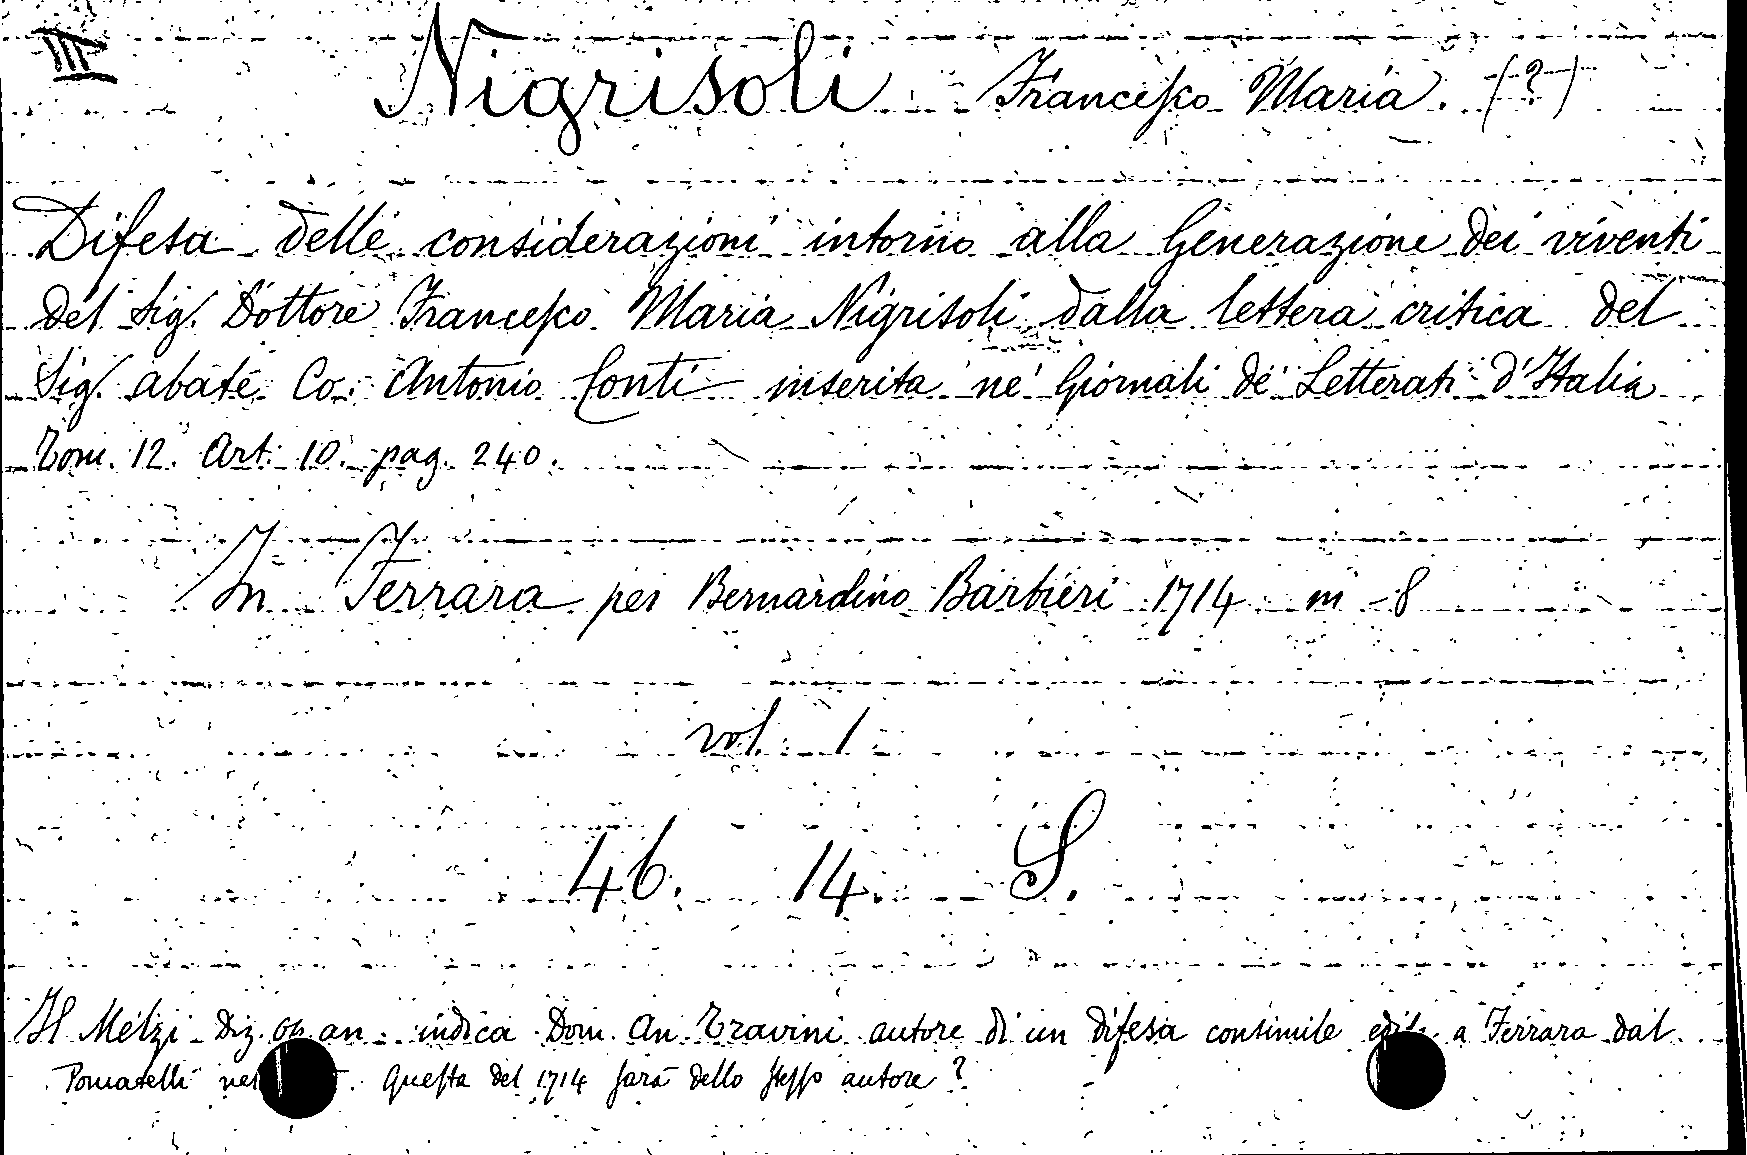 III
Nigrisoli Francesco Maria. (?)
Difesa delle considerazioni intorno alla Generazione dei viventi
del Sig. Dottore Francesco Maria Nigrisoli dalla lettera critica del
Sig. abate Co. Antonio Conti inserita ne' Giornali de' Letterati d'Italia
Tom. 12. Art. 10. pag. 240.
In Ferrara per Bernardino Barbieri 1714 in 8
vol. 1
46. 14. S.
Il Melzi Diz. op. an. indica Dom. An. Travini autore di un difesa consimile edit. a Ferrara dal
Pomatelli nel . Questa del 1714 sarà dello stesso autore?